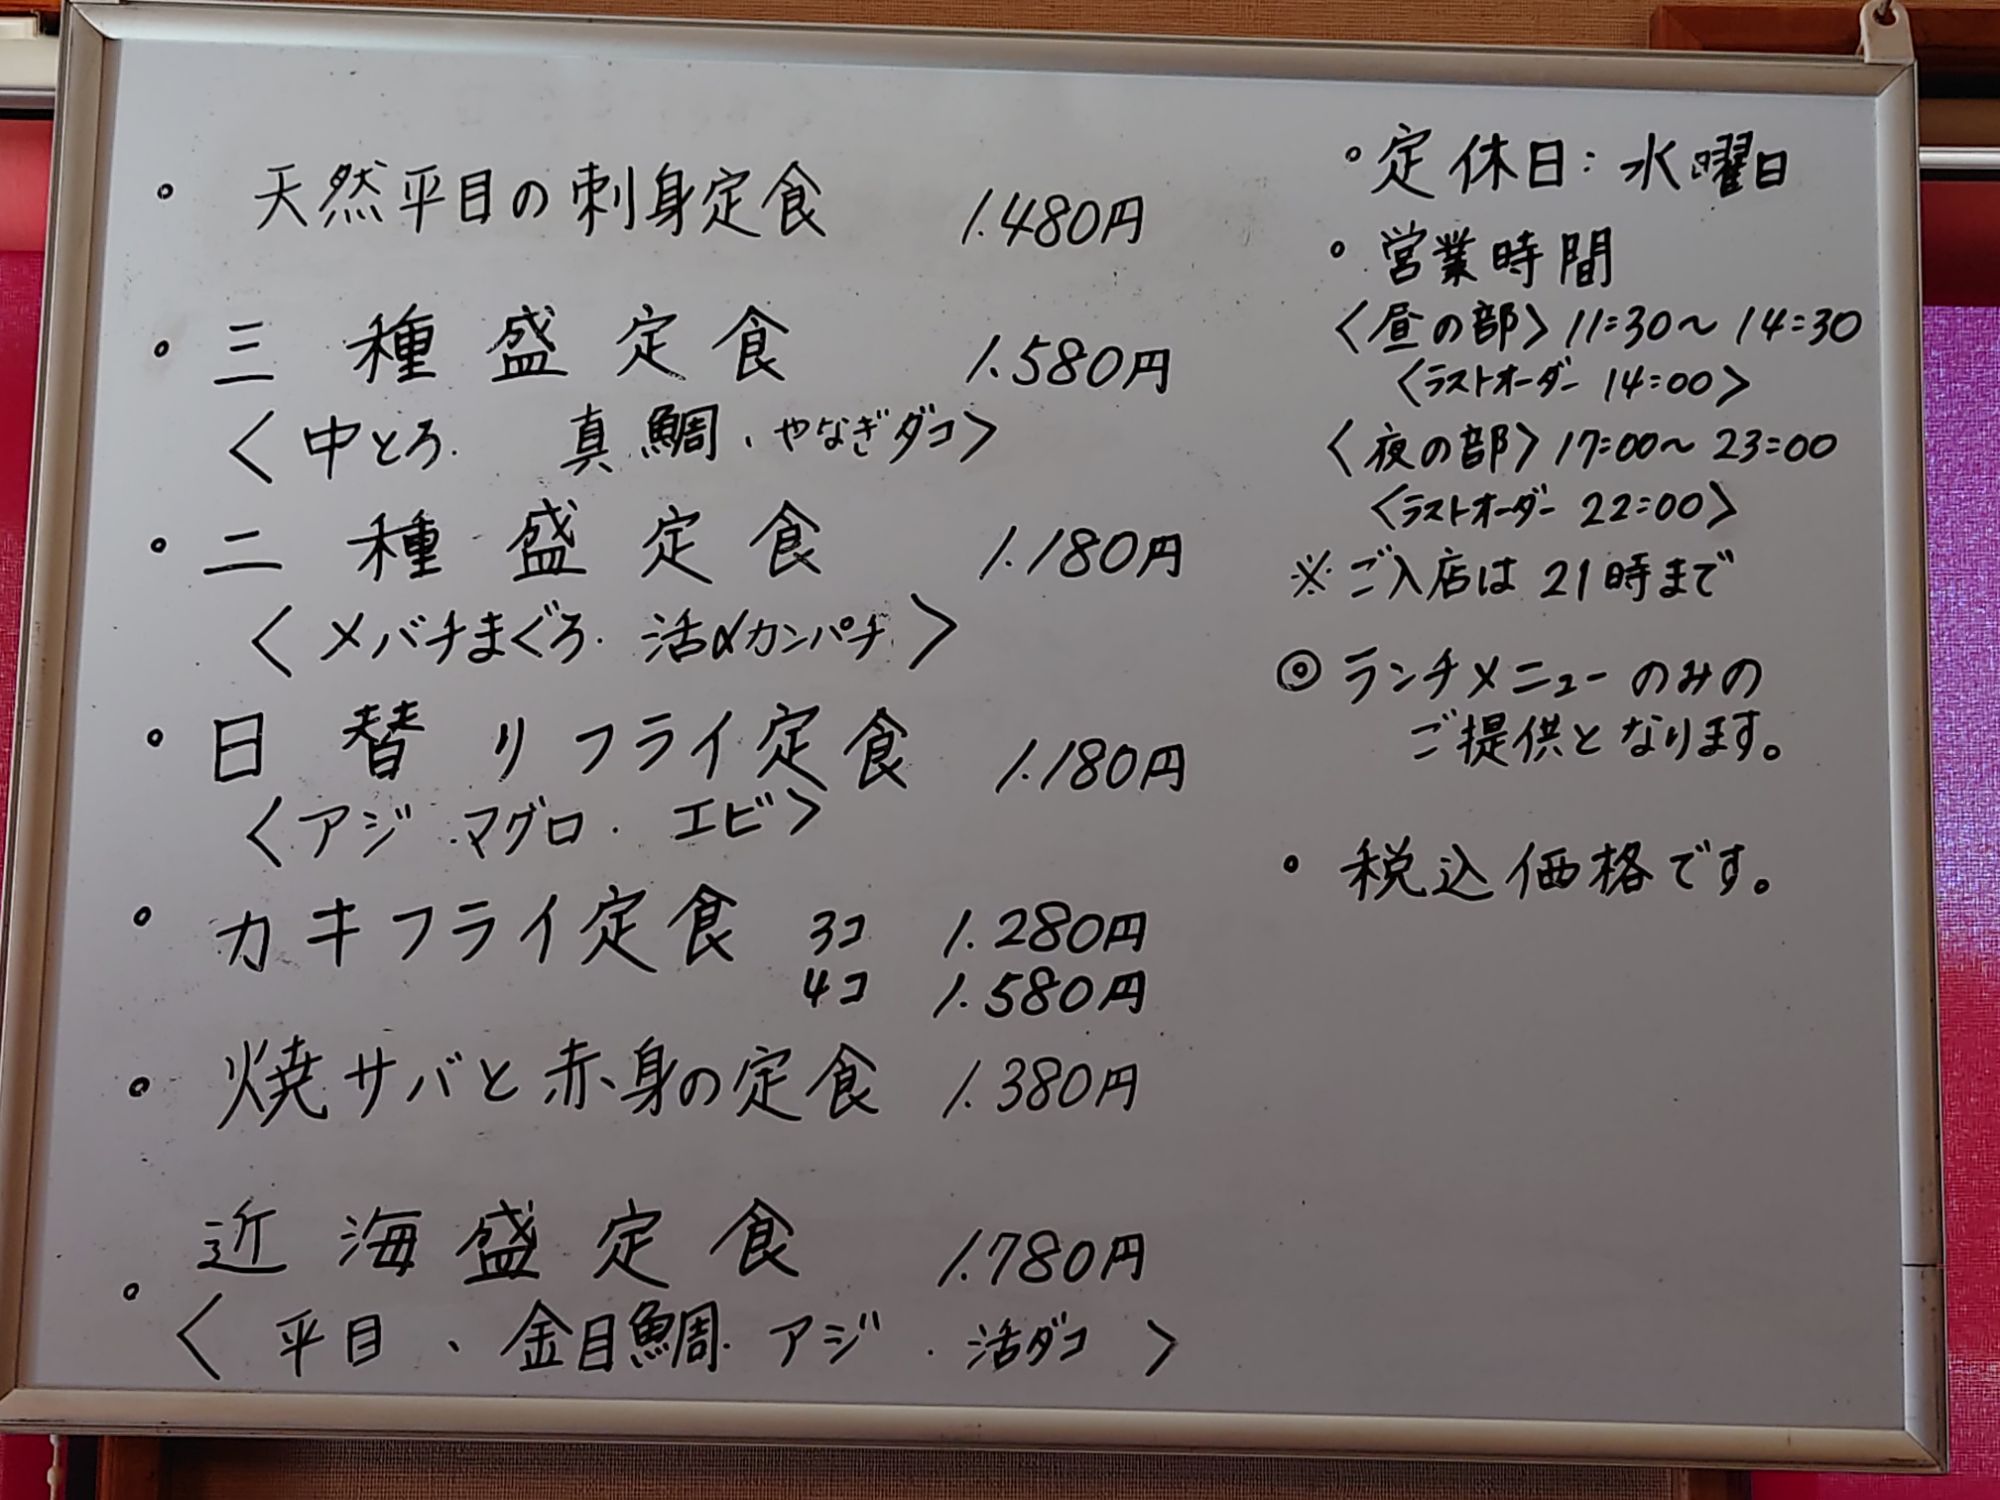 ・ 天然平目の刺身定食 1.480円
・ 三種盛定食 1.580円
〈中とろ. 真鯛、やなぎダコ〉
・ 二種盛定食 1.180円
〈メバチまぐろ. 活〆カンパチ〉
・ 日替りフライ定食 1.180円
〈アジ.マグロ.エビ〉
・ カキフライ定食 3コ 1.280円
4コ 1.580円
・ 焼サバと赤身の定食 1.380円
・ 近海盛定食 1.780円
〈平目、金目鯛.アジ.活ダコ〉
・定休日:水曜日
・営業時間
〈昼の部〉11:30〜14:30
〈ラストオーダー 14:00〉
〈夜の部〉17:00〜23:00
〈ラストオーダー 22:00〉
※ご入店は21時まで
◎ランチメニューのみの
ご提供となります。
・税込価格です。